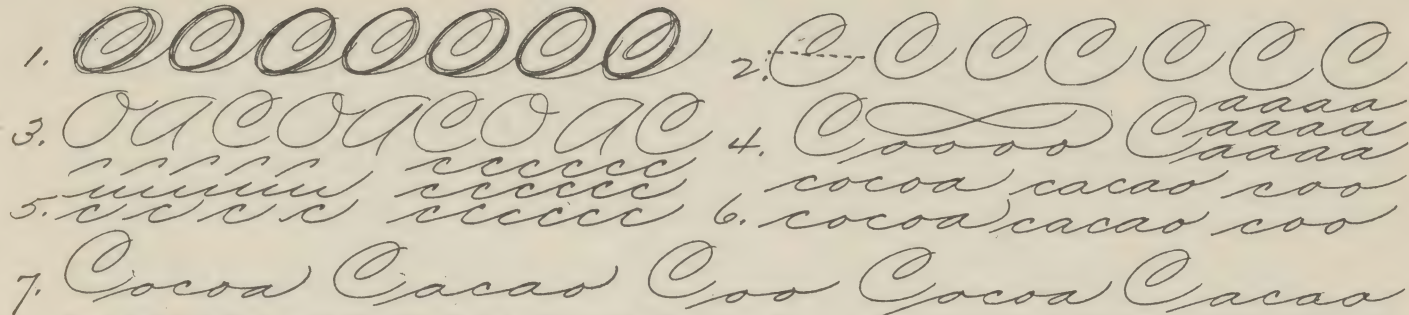 1. O O O O O O O
2. C C C C C C C
3. O a C O a C O a C
4. C o o o o C a a a a
a a a a
a a a a
c c c c c c c c c c c
u u u u u u c c c c c c
5. c c c c c c c c c c
6. cocoa cacao coo
cocoa cacao coo
7. Cocoa Cacao Coo Cocoa Cacao